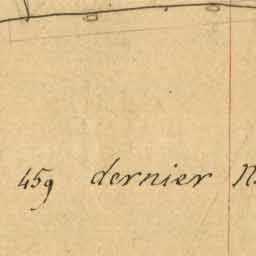 459 dernier N